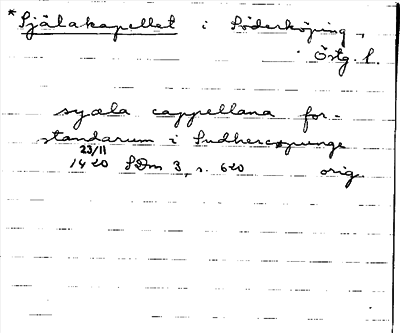 *Själakapellet i Söderköping,
Östg. l.
syæla cappellana for-
standarum i Sudhercøpunge
23/11
1420 SDm 3, s. 620 orig.